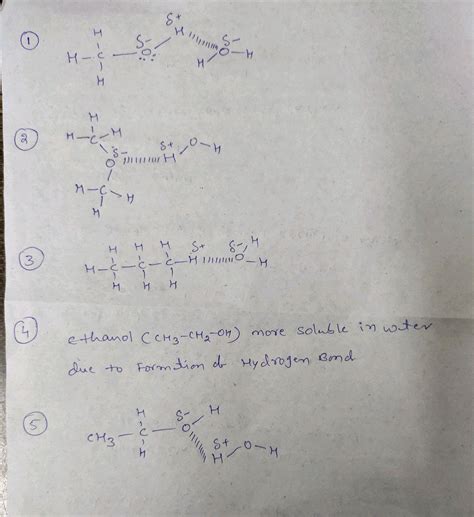 ①
H
δ+
H
δ-
H-C-O
δ-
O
H H
H
②
H
H-C-H
δ-
O
δ+
H-O-H
H-C-H
H
③
H H H
δ+ δ- H
H-C-C-C-H O-H
H H H
④
ethanol (CH3-CH2-OH) more soluble in water
due to Formtion of Hydrogen Bond
⑤
H
δ- H
CH3-C-O
H
δ+
H-O-H